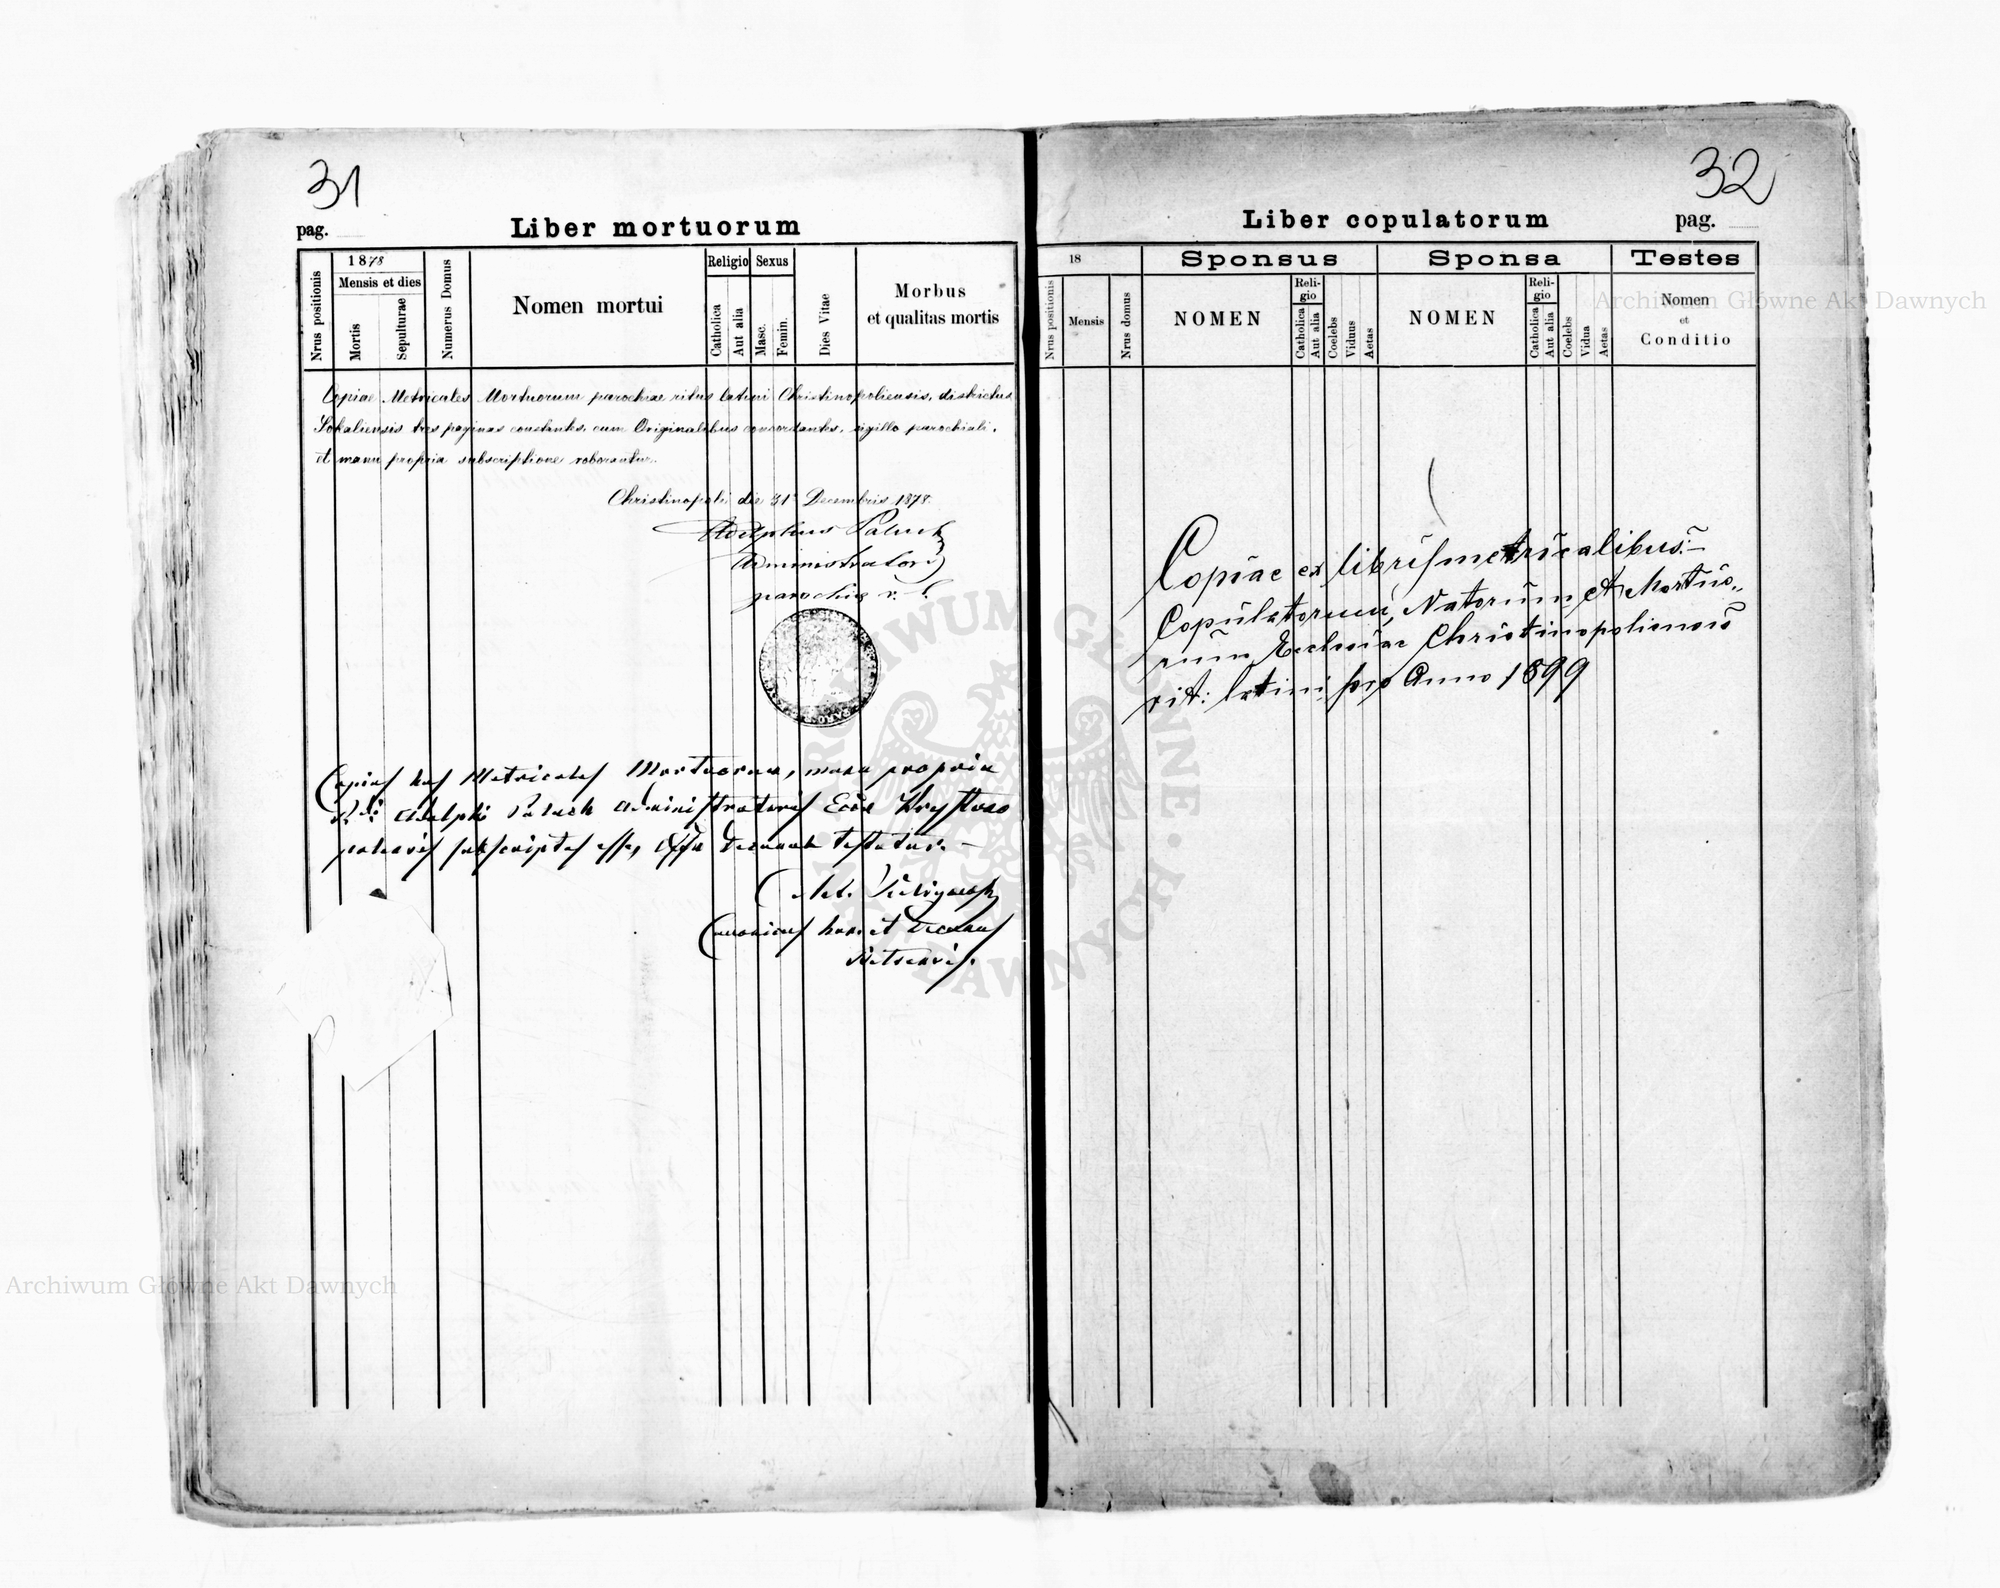 31
pag.
Liber mortuorum
Nrus positionis
1878
Mensis et dies
Mortis
Sepulturae
Numerus Domus
Nomen mortui
Religio
Catholica
Aut alia
Sexus
Masc.
Femin.
Dies Vitae
Morbus
et qualitas mortis
Copiae Metricales Mortuorum parochiae ritus latini Christinopoliensis, districtus
Sokaliensis tres paginas constantes, cum Originalibus concordantes, sigillo parochiali,
et manu propria subscriptione roborantur.
Christinopoli die 31 Decembris 1878.
Adolphus Paluch
Administrator
parochiae r. l.
Copias has Metricales Mortuorum, manu propria
Adolphi Paluch Administratoris Krystyno
poleoris subscriptas esse, testatur.
Canonicus hon. et Decanus
32
Liber copulatorum
pag.
18
Nrus positionis
Mensis
Nrus domus
Sponsus
NOMEN
Reli-
gio
Catholica
Aut alia
Coelebs
Viduus
Aetas
Sponsa
NOMEN
Reli-
gio
Catholica
Aut alia
Coelebs
Vidua
Aetas
Testes
Nomen
et
Conditio
Copiae ex libris metricalibus:
Copulatorum, Natorum et Mortuo-
rum Ecclesiae Christinopoliensis
rit: latini pro Anno 1899
Archiwum Główne Akt Dawnych
Archiwum Główne Akt Dawnych
ARCHIWUM GŁÓWNE AKT DAWNYCH